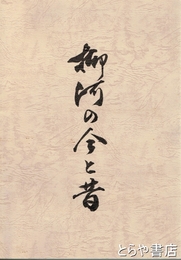 柳河の今と昔
とらや書店